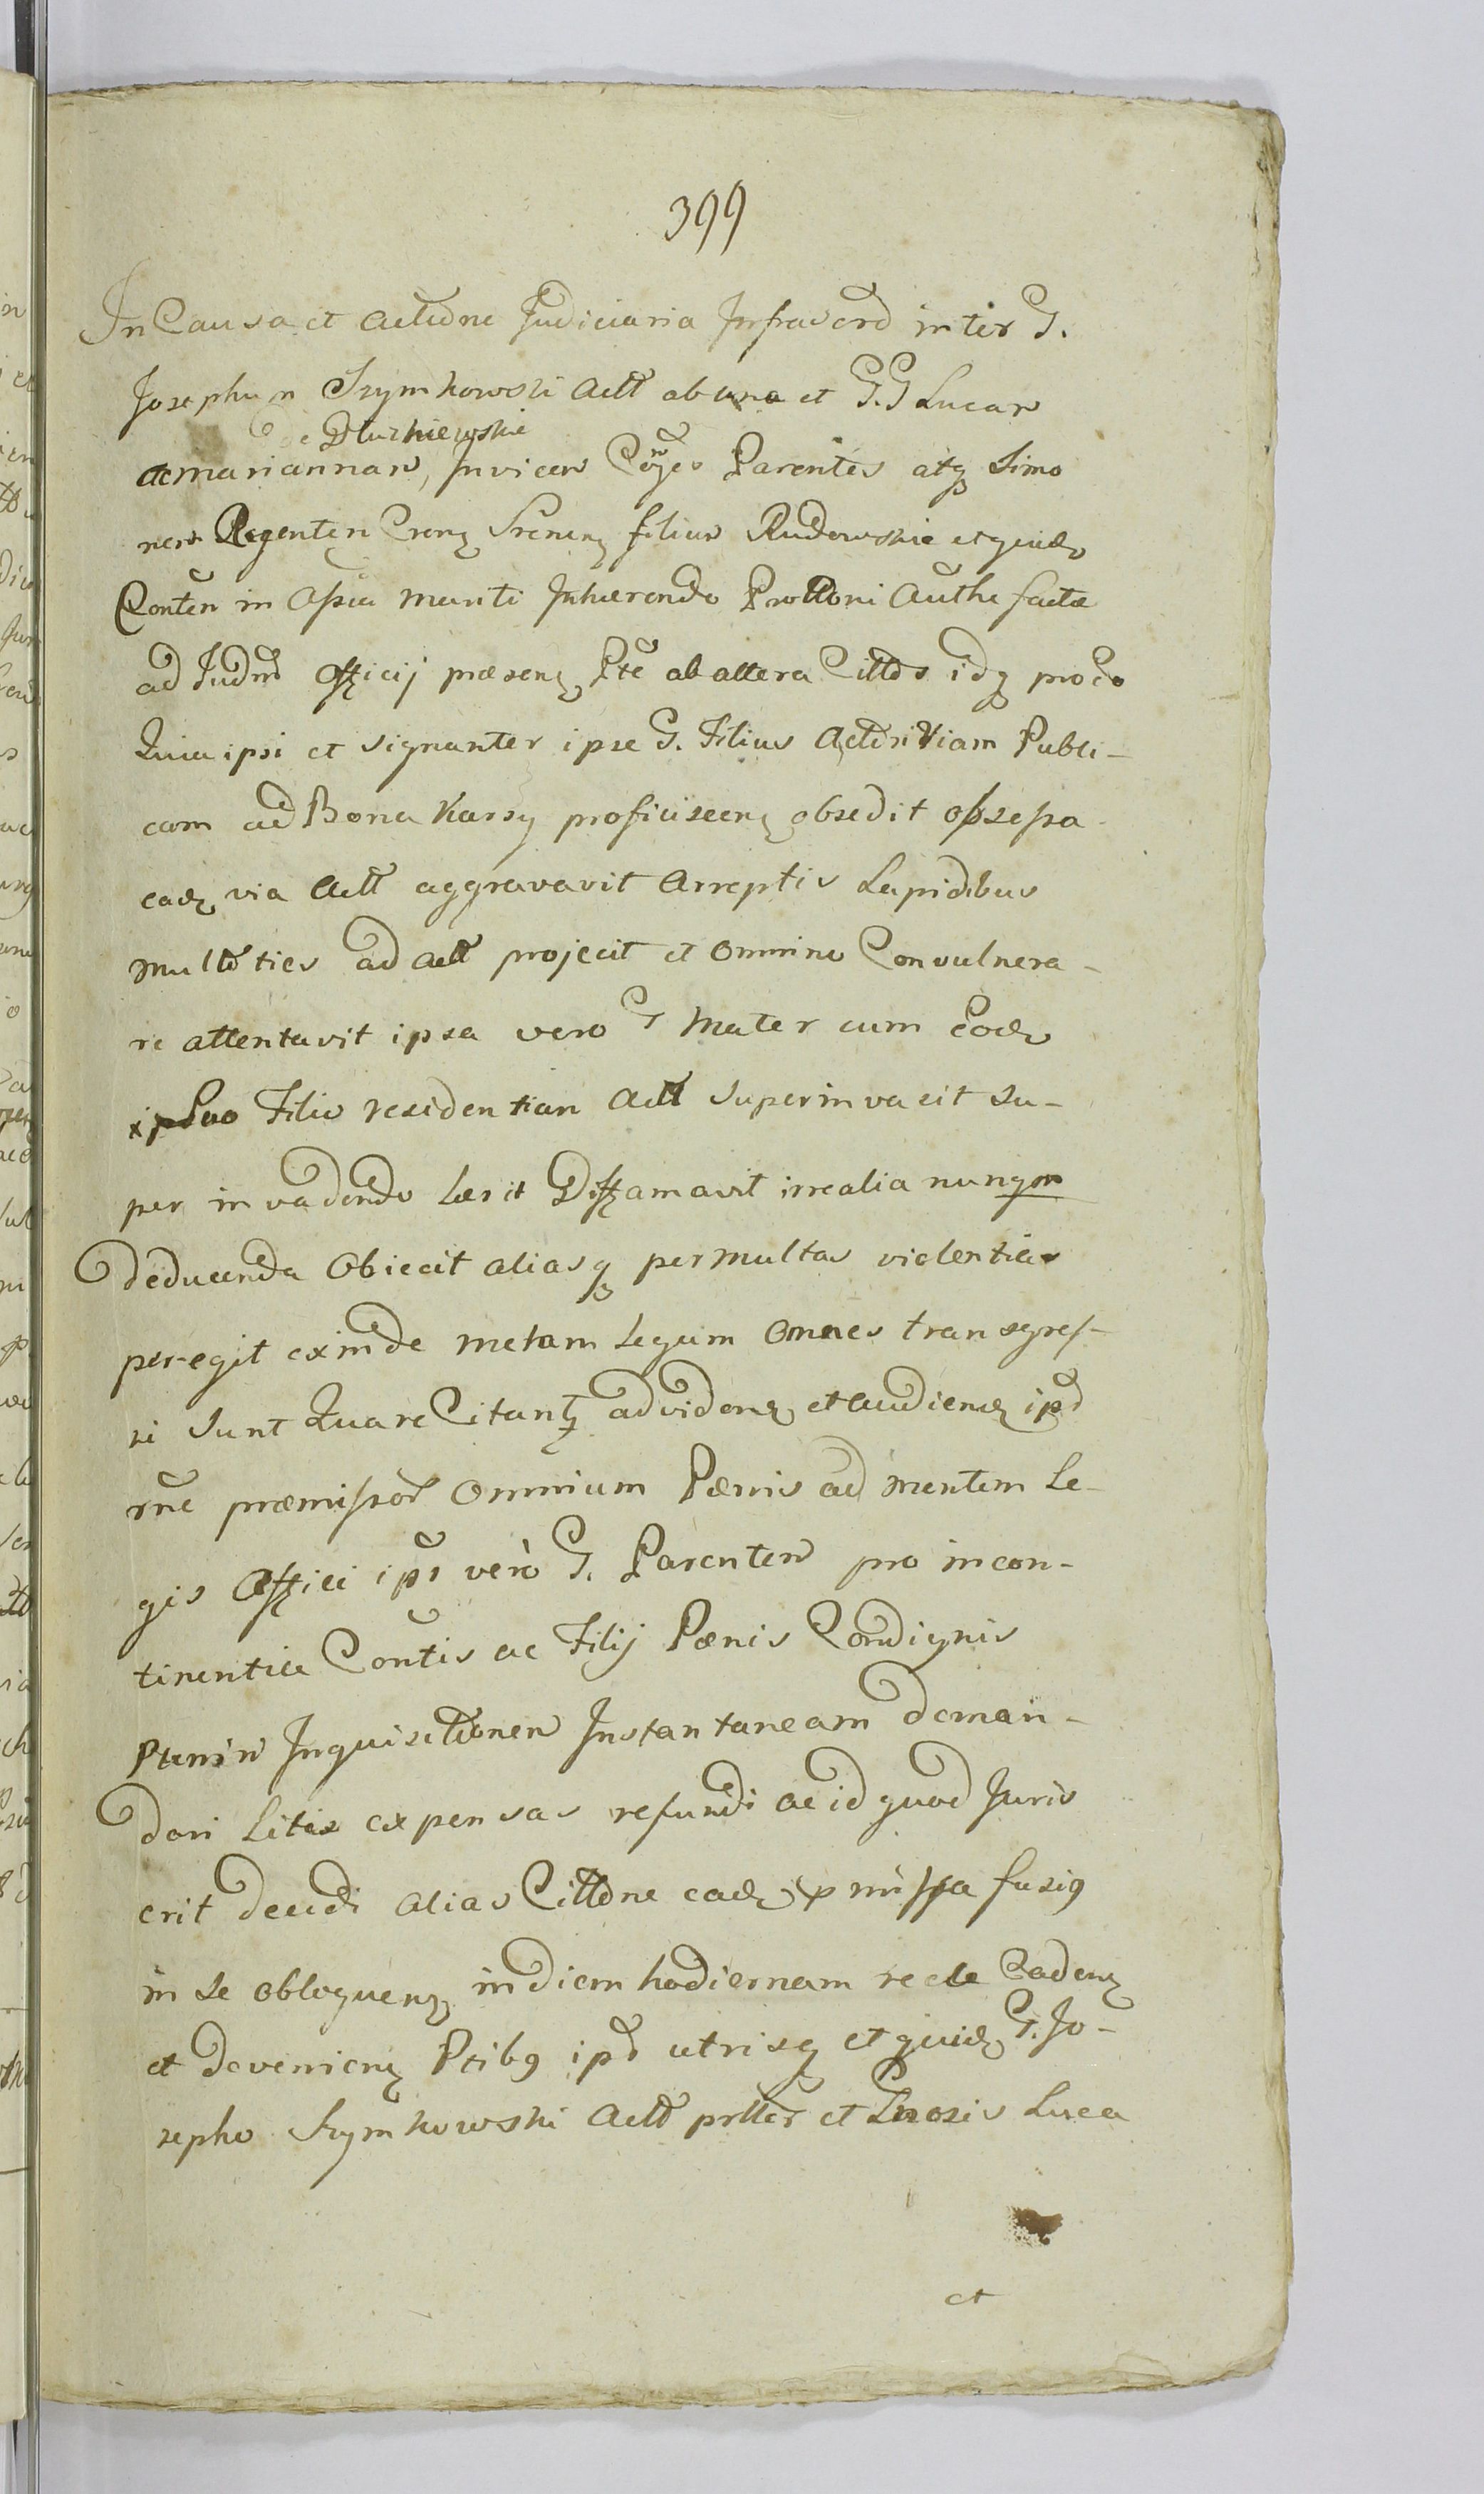 399
In Causa et Actione Judiciaria Infrascrõ inter G.
Josephum Szymkowski Actt ab una et G.G Lucam
de Dłuzniewskie
ac Mariannam, Invicem Cõjges Parentes atq Simo
nem Regentem Crenq Srenenq filium Rudowskie et quidq
Conten in Assia Mariti Inhærendo Prottoni Authe factæ
ad Judm Officij præsenq Pte ab altera Cittõs idq proeo
Quia ipsi et signanter ipse G. Filius Actõri Viam Publi-
cam ad Bona Karsy proficiscenq obsedit obsessa
eadq via Actt aggravavit Arreptis Lapidibus
multo ties ad Actt projecit et omnino Convulnera-
re attentavit ipsa vero G Mater cum Eodq
suo Filio residentiam Actt superinvasit su-
per invadendo læsit Diffamavit irrealia nunqm
deducenda Obiecit aliasq permultas violentias
peregit exinde metam Legum Omnes transgres-
si sunt Quare Citantq ad videnq et audienq ipõ
rne præmissor Omnium Pænis ad mentem Le-
gis Affici ipõs vero G. Parentem pro incon-
tinentia Contis ac Filij Pænis Condignis
Puniri Inquisitionem Instantaneam deman-
dari Litis expensas refundi ac id quod Juris
erit decidi alias Cittõne eadq pmissa fusiq
in se obloquenq in diem hodiernam recte Cadenq
et devenienq Ptibq ipõ utrisq et quidq G. Jo-
sepho Szymkowski Actt prtter et Gnosis Luca
et